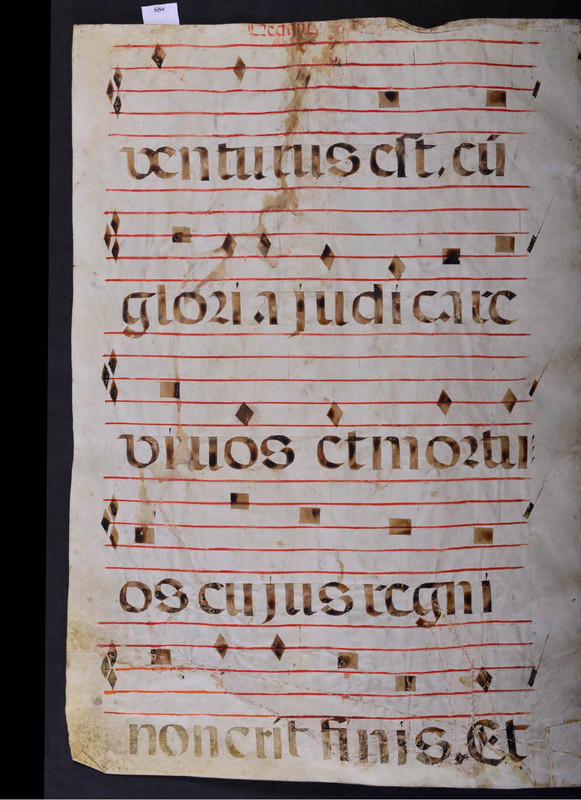 68v
venturus est. cū
gloria judicare
viuos et mortu
os cujus regni
non erit finis. Et